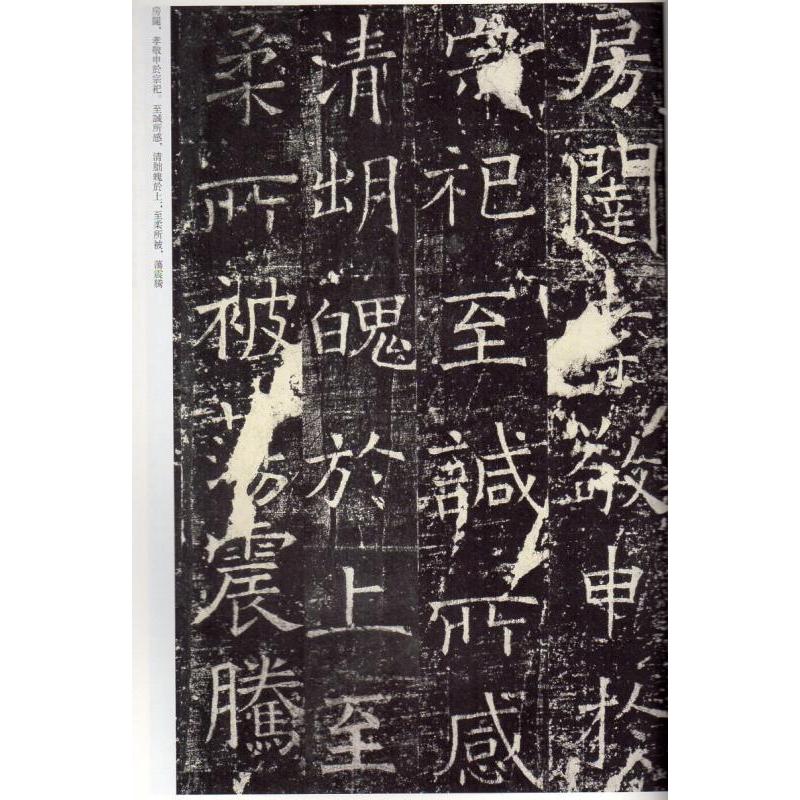 房闥孝敬申於
宗祀至誠所感
清朏魄於上至
柔所被蕩震騰
房闥，孝敬申於宗祀。至誠所感，清朏魄於上；至柔所被，蕩震騰